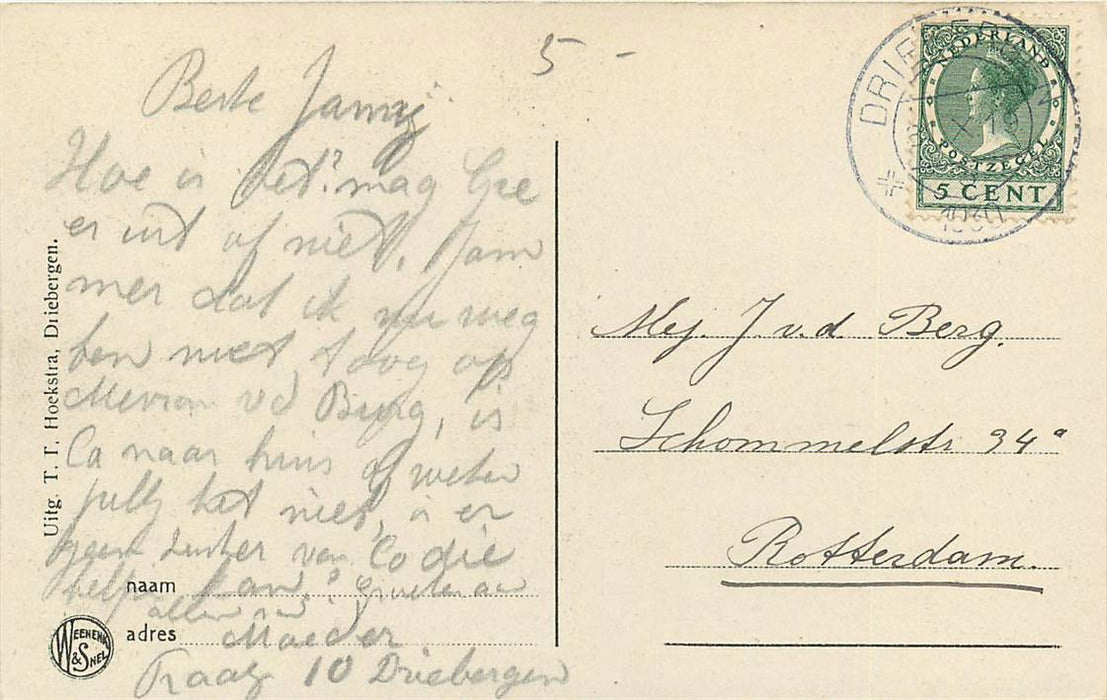 5 -
Beste
Hoe is het? mag Gre
er uit of niet. Jam
mer dat ik nu weg
ben niet,
Mevrouw vd Burg, is
Co naar huis of weten
jully het niet, is er
geen zuster van Co die
helpen kan? Groeten aan
allen
Moeder
10 Driebergen
naam
adres
Uitg. T. T. Hoekstra, Driebergen.
WEENENK & SNEL
DRIEBERGEN
1930
NEDERLAND
POSTZEGEL
5 CENT
Mej. J v.d Berg.
Schommelstr 94a
Rotterdam.